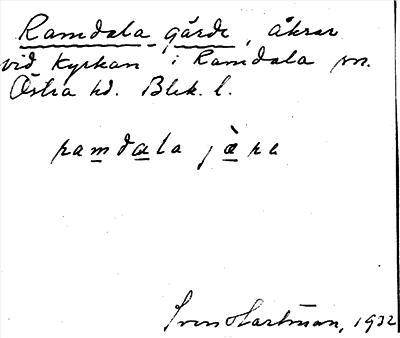 Ramdala-gärde, åkrar
vid kyrkan i Ramdala sn.
Östra hd. Blek. l.
ramdala jæ̀re
Sven Hartman, 1932